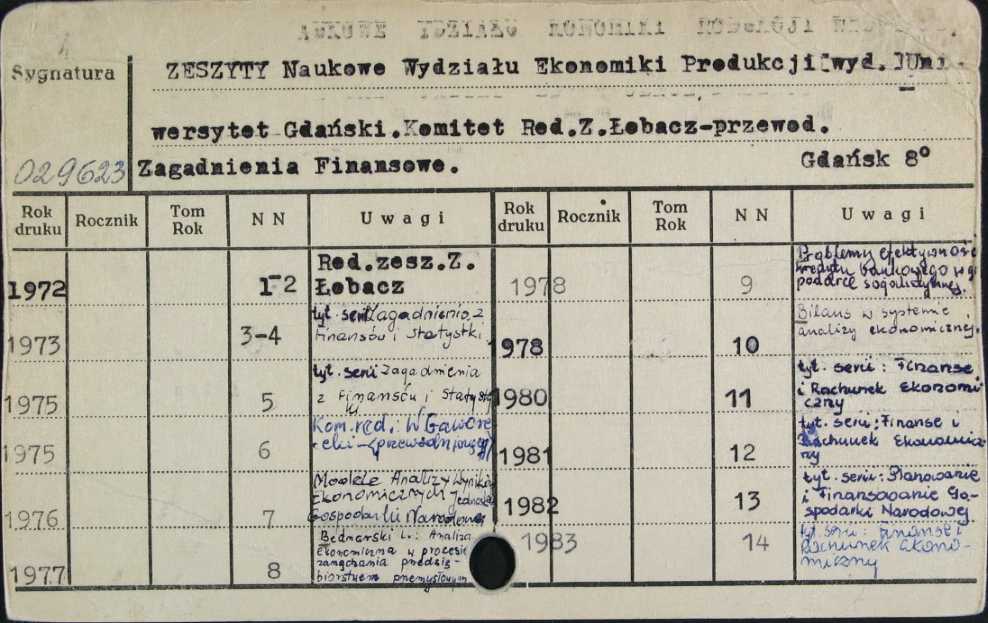 Sygnatura
ZESZYTY Naukowe Wydziału Ekonomiki Produkcji[wyd.]Uni-
wersytet Gdański.Komitet Red.Z.Łobacz-przewod.
029623 Zagadnienia Finansowe. Gdańsk 8°
Rok druku Rocznik Tom Rok N N Uwagi Rok druku Rocznik Tom Rok N N Uwagi
1972 1-2 Red.zesz.Z.
Łobacz
1973 3-4 tyt. serii Zagadnienia z
Finansów i Statystki
1975 5 tyt. serii Zagadnienia
z Finansów i Statysty
ki
1975 6 Kom. red.: W Gawore
cki - (przewodniczący)
1976 7 Modele Analizy Wyników
Ekonomicznych Jednostek
Gospodarki Narodowej
1977 8 Bednarski L.: Analiza
ekonomiczna w procesie
zarządzania przedsię-
biorstwem przemysłowym
1978 9 Problemy efektywności
kredytu bankowego w go
podarce socjalistycznej
1978 10 Bilans w systemie
analizy ekonomicznej.
1980 11 tyt. serii: Finanse
i Rachunek Ekonomi
czny
1981 12 tyt. serii: Finanse i
Rachunek Ekonomicz
ny
1982 13 tyt. serii: Planowanie
i Finansowanie Go-
spodarki Narodowej
1983 14 tyt. serii: Finanse i
Rachunek Ekono-
miczny